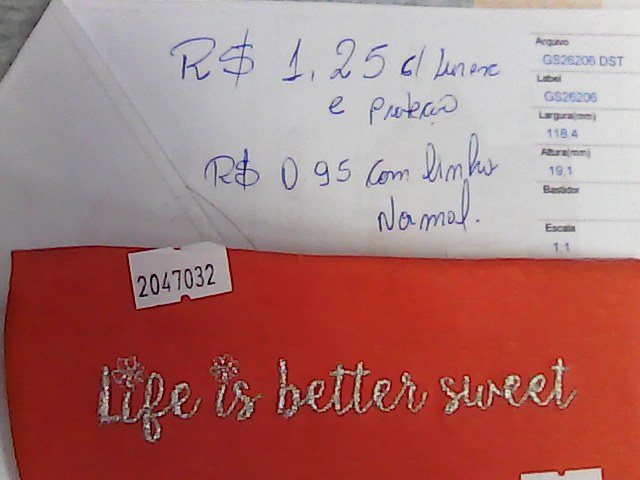 R$ 1,25 c/ Lurex
e proteção
R$ 0.95 com linha
Normal.
Arquivo
GS26206.DST
Label
GS26206
Largura(mm)
118,4
Altura(mm)
19,1
Bastidor
Escala
1:1
2047032
Life is better sweet